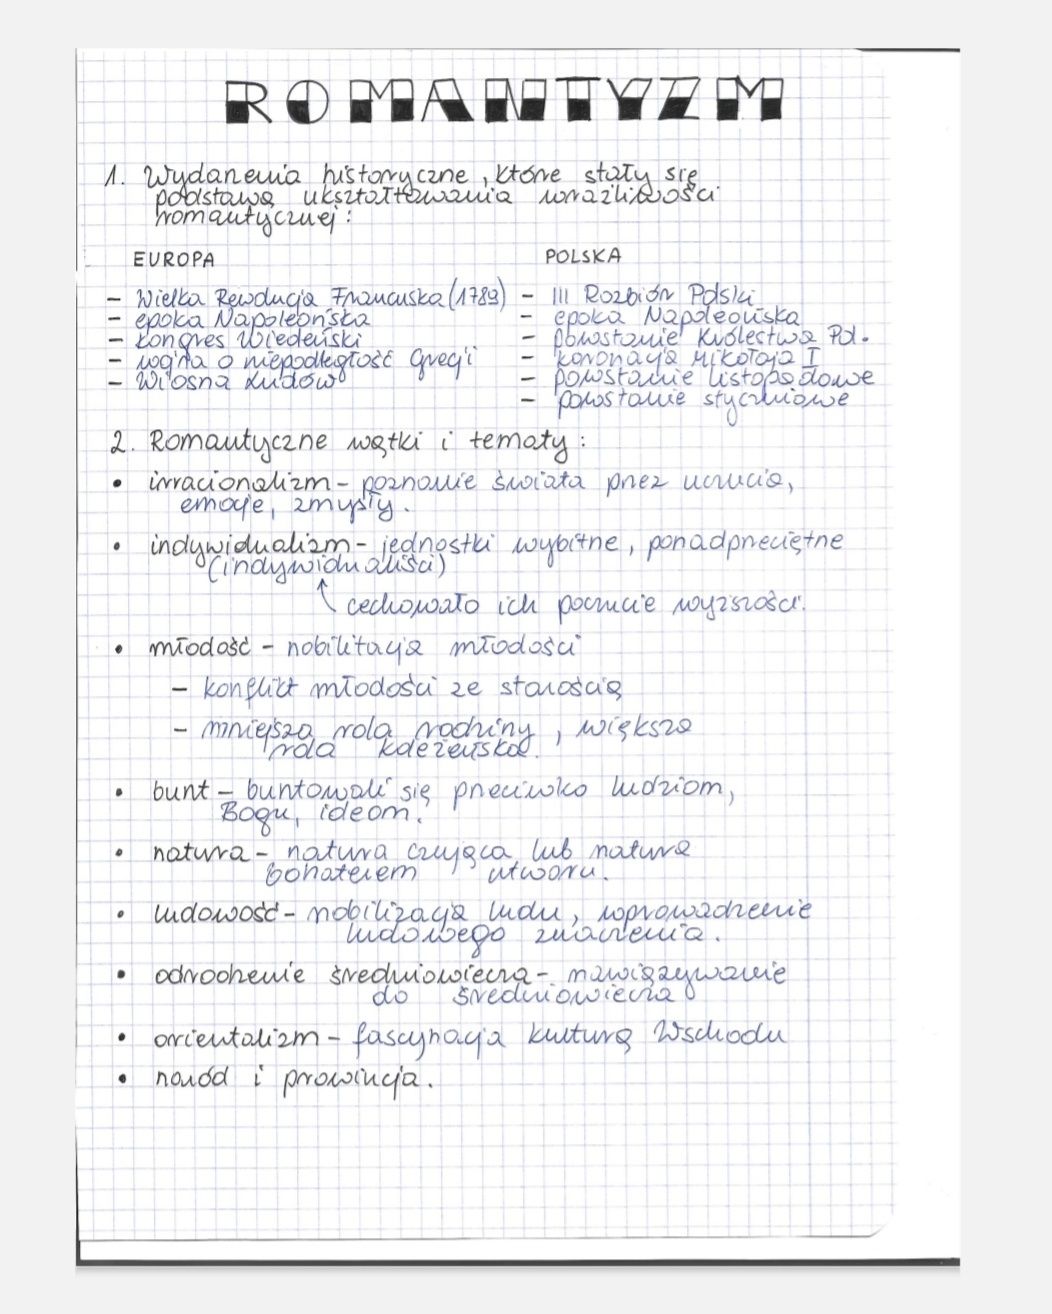 ROMANTYZM
1. Wydarzenia historyczne, które stały się
podstawą ukształtowania wrażliwości
romantycznej:
EUROPA
- Wielka Rewolucja Francuska (1789)
- epoka Napoleońska
- kongres Wiedeński
- wojna o niepodległość Grecji
- Wiosna Ludów
POLSKA
- III Rozbiór Polski
- epoka Napoleońska
- powstanie Królestwa Pol.
- koronacja Mikołaja I
- powstanie listopadowe
- powstanie styczniowe
2. Romantyczne wątki i tematy:
• irracionalizm - poznanie świata przez uczucia,
emocje, zmysły.
• indywidualizm - jednostki wybitne, ponadprzeciętne
(indywidualiści)
cechowało ich poczucie wyższości.
• młodość - nobilitacja młodości
- konflikt młodości ze starością
- mniejsza rola rodziny, większa
rola koleżeńska.
• bunt - buntowali się przeciwko ludziom,
Bogu, ideom.
• natura - natura czująca lub natura
bohaterem utworu.
• ludowość - nobilizacja ludu, wprowadzenie
ludowego znaczenia.
• odrodzenie średniowiecza - nawiązywanie
do średniowiecza
• orientalizm - fascynacja kulturą Wschodu
• naród i prowincja.